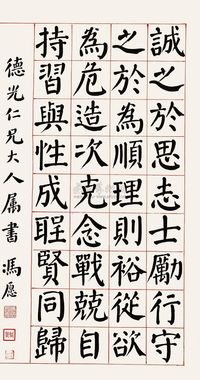 誠之於思志士勵行守
之於為順理則裕從欲
為危造次克念戰兢自
持習與性成聖賢同歸
德光仁兄大人属書 馮愿